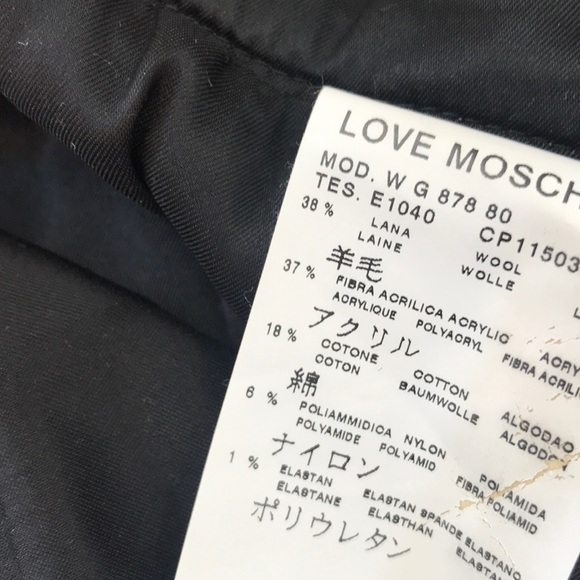 LOVE MOSCH
MOD. W G 878 80
TES. E1040 CP11503
38 % LANA WOOL
LAINE WOLLE
羊毛
37 % FIBRA ACRILICA ACRYLIC ACRY
ACRYLIQUE POLYACRYL FIBRA ACRIL
アクリル
18 % COTONE COTTON ALGODAO
COTON BAUMWOLLE ALGODON
綿
6 % POLIAMMIDICA NYLON POLIAMIDA
POLYAMIDE POLYAMID FIBRA POLIAMID
ナイロン
1 % ELASTAN ELASTAN SPANDE ELASTANO
ELASTANE ELASTHAN ELASTAN
ポリウレタン